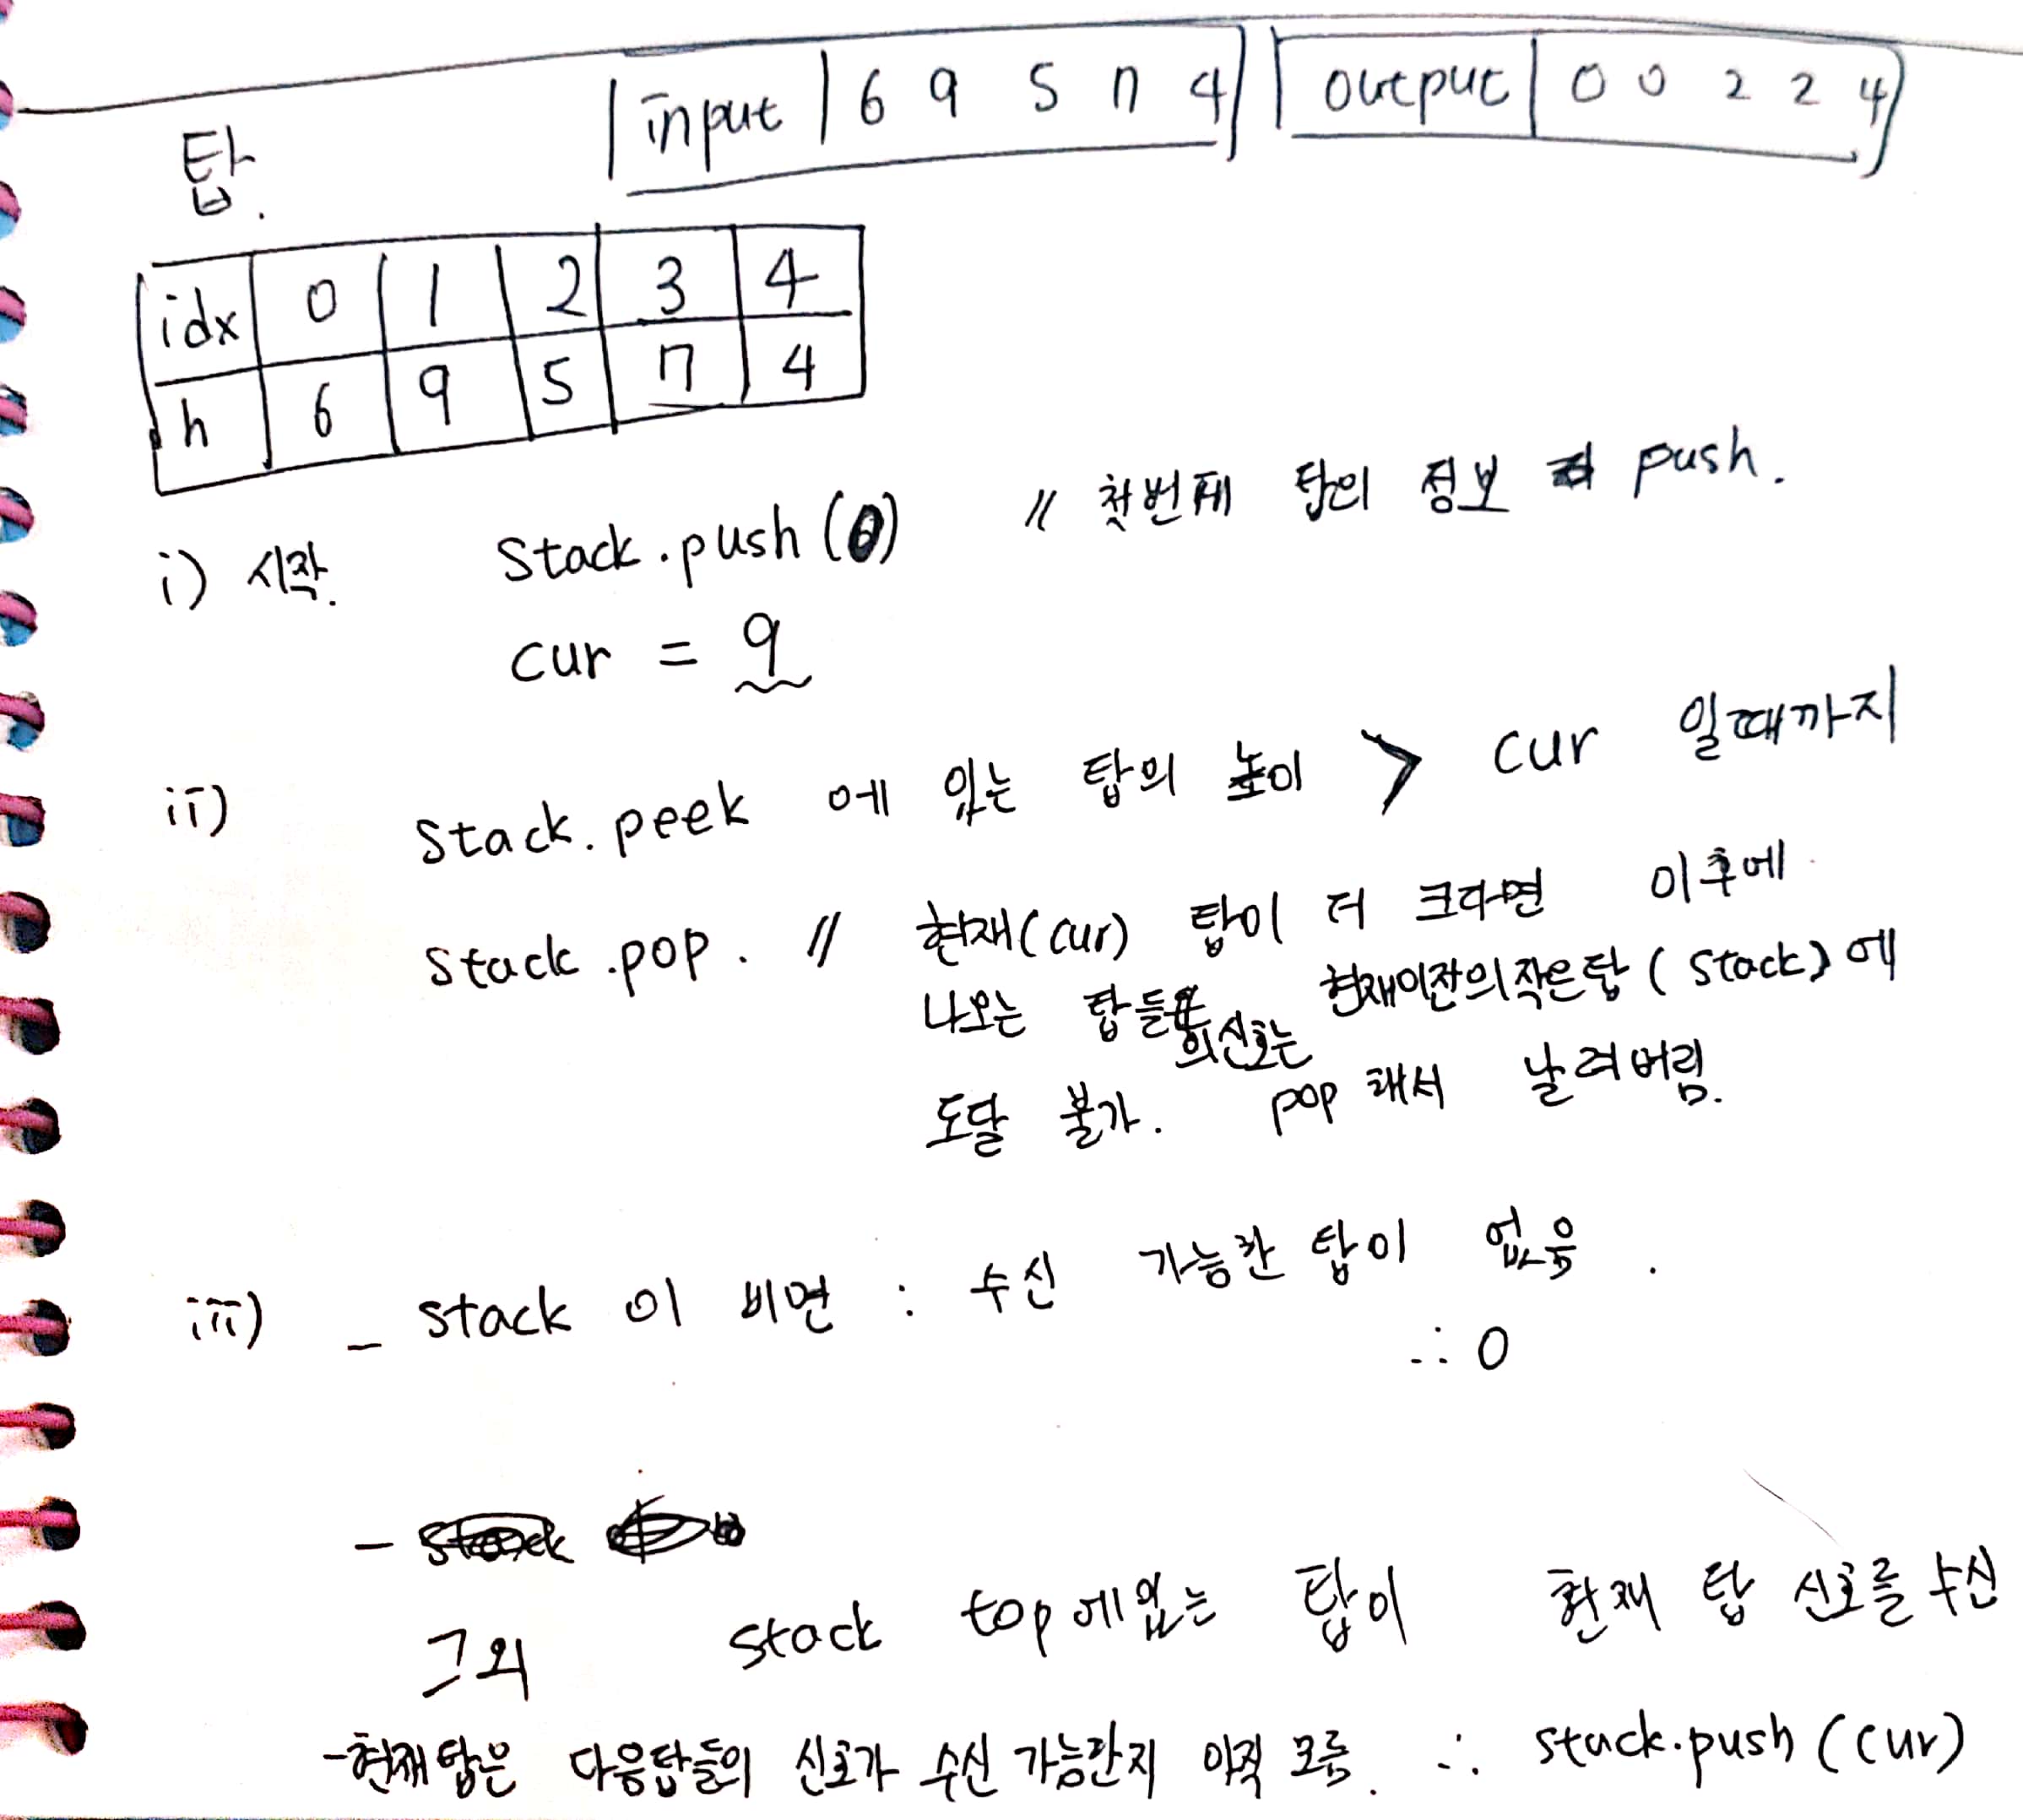 input 6 9 5 7 4 output 0 0 2 2 4
탑.
idx 0 1 2 3 4
h 6 9 5 7 4
i) 시작. stack.push(0) // 첫번째 탑의 정보 push.
cur = 9
ii) stack.peek 에 있는 탑의 높이 > cur 일때까지
stack.pop. // 현재(cur) 탑이 더 크다면 이후에
나오는 탑들의신호는 현재이전의작은탑(stack)에
도달 불가. pop 해서 날려버림.
iii) - stack 이 비면 : 수신 가능한 탑이 없음.
∴ 0
-
그외 stack top에있는 탑이 현재 탑 신호를 수신
-현재탑은 다음탑들의 신호가 수신 가능한지 아직 모름. ∴ stack.push(cur)